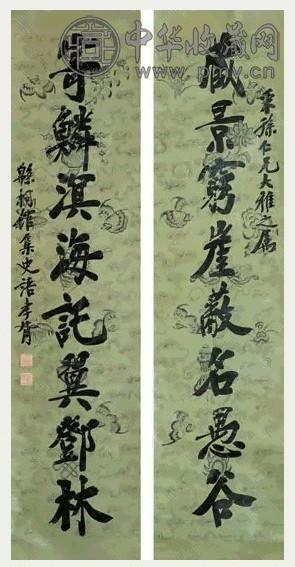 中华收藏网
藏景窮崖蔽名愚谷
孫仁兄大雅之屬
寄鱗溟海託翼鄧林
緜桐館集史語孝胥